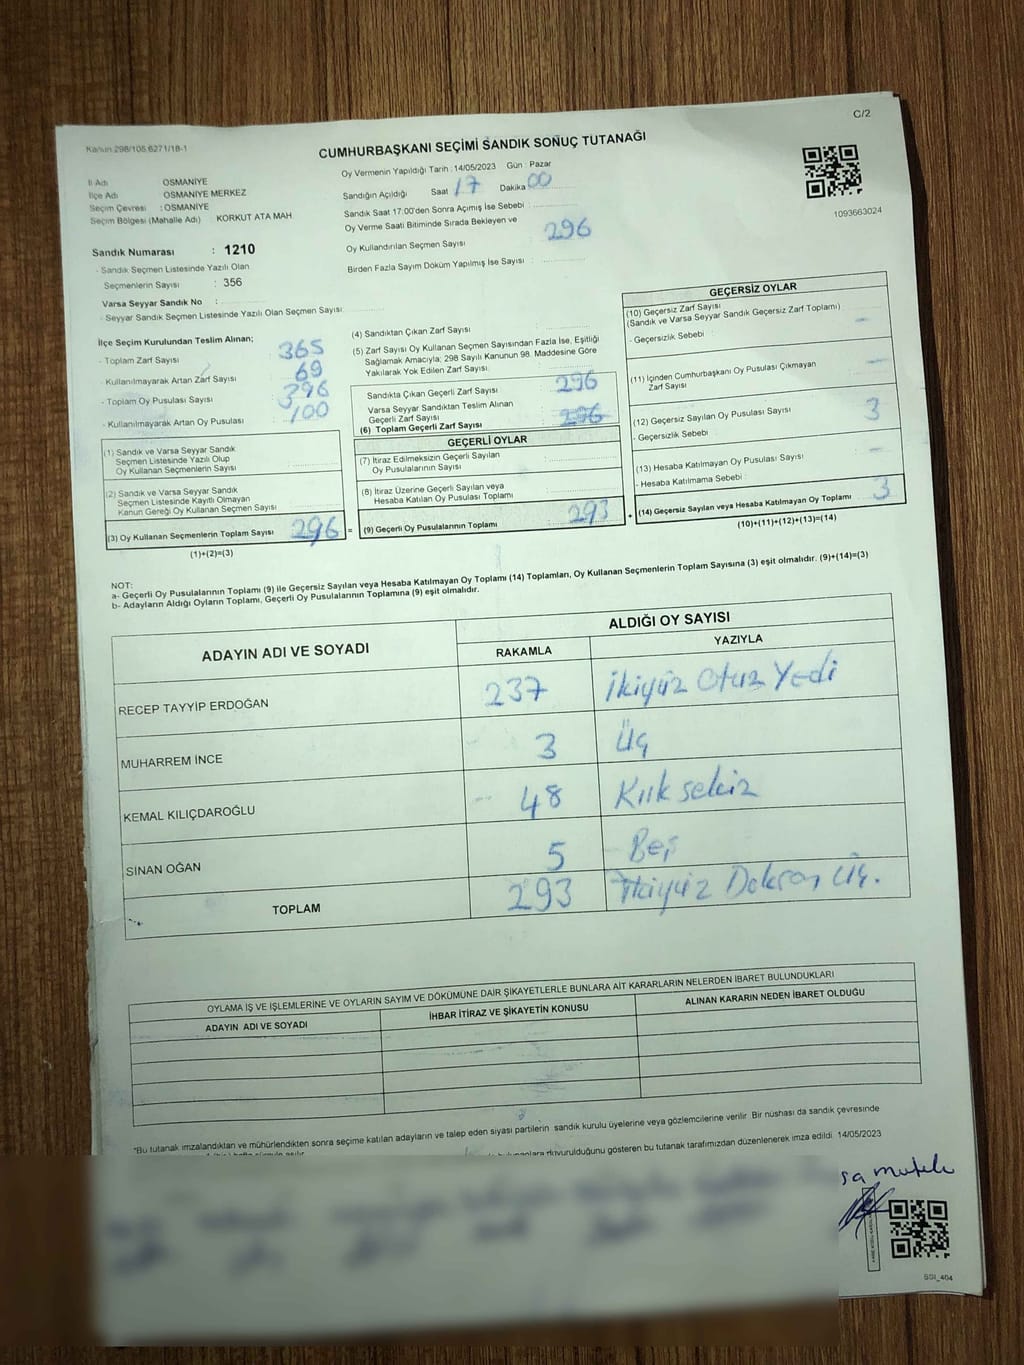 C/2
Kanun 298/105,6271/18-1
CUMHURBAŞKANI SEÇİMİ SANDIK SONUÇ TUTANAĞI
İl Adı OSMANİYE
İlçe Adı OSMANİYE MERKEZ
Seçim Çevresi : OSMANİYE
Seçim Bölgesi (Mahalle Adı) KORKUT ATA MAH
Sandık Numarası : 1210
- Sandık Seçmen Listesinde Yazılı Olan
Seçmenlerin Sayısı : 356
Varsa Seyyar Sandık No :
- Seyyar Sandık Seçmen Listesinde Yazılı Olan Seçmen Sayısı:
Oy Vermenin Yapıldığı Tarih : 14/05/2023 Gün : Pazar
Sandığın Açıldığı Saat 17 Dakika 00
Sandık Saat 17:00'den Sonra Açımış İse Sebebi :
Oy Verme Saati Bitiminde Sırada Bekleyen ve
Oy Kullandırılan Seçmen Sayısı : 296
Birden Fazla Sayım Döküm Yapılmış İse Sayısı :
1093663024
İlçe Seçim Kurulundan Teslim Alınan;
- Toplam Zarf Sayısı : 365
- Kullanılmayarak Artan Zarf Sayısı : 69
- Toplam Oy Pusulası Sayısı : 396
- Kullanılmayarak Artan Oy Pusulası : 100
(1) Sandık ve Varsa Seyyar Sandık
Seçmen Listesinde Yazılı Olup
Oy Kullanan Seçmenlerin Sayısı :
(2) Sandık ve Varsa Seyyar Sandık
Seçmen Listesinde Kayıtlı Olmayan
Kanun Gereği Oy Kullanan Seçmen Sayısı :
(3) Oy Kullanan Seçmenlerin Toplam Sayısı 296 =
(1)+(2)=(3)
(4) Sandıktan Çıkan Zarf Sayısı :
(5) Zarf Sayısı Oy Kullanan Seçmen Sayısından Fazla İse, Eşitliği
Sağlamak Amacıyla; 298 Sayılı Kanunun 98. Maddesine Göre
Yakılarak Yok Edilen Zarf Sayısı. :
Sandıkta Çıkan Geçerli Zarf Sayısı : 296
Varsa Seyyar Sandıktan Teslim Alınan
Geçerli Zarf Sayısı :
(6) Toplam Geçerli Zarf Sayısı : 296
GEÇERLİ OYLAR
(7) İtiraz Edilmeksizin Geçerli Sayılan
Oy Pusulalarının Sayısı :
(8) İtiraz Üzerine Geçerli Sayılan veya
Hesaba Katılan Oy Pusulası Toplamı :
(9) Geçerli Oy Pusulalarının Toplamı : 293 +
GEÇERSİZ OYLAR
(10) Geçersiz Zarf Sayısı
(Sandık ve Varsa Seyyar Sandık Geçersiz Zarf Toplamı) : -
- Geçersizlik Sebebi :
(11) İçinden Cumhurbaşkanı Oy Pusulası Çıkmayan
Zarf Sayısı : -
(12) Geçersiz Sayılan Oy Pusulası Sayısı : 3
- Geçersizlik Sebebi :
(13) Hesaba Katılmayan Oy Pusulası Sayısı : -
- Hesaba Katılmama Sebebi :
(14) Geçersiz Sayılan veya Hesaba Katılmayan Oy Toplamı : 3
(10)+(11)+(12)+(13)=(14)
NOT:
a- Geçerli Oy Pusulalarının Toplamı (9) ile Geçersiz Sayılan veya Hesaba Katılmayan Oy Toplamı (14) Toplamları, Oy Kullanan Seçmenlerin Toplam Sayısına (3) eşit olmalıdır. (9)+(14)=(3)
b- Adayların Aldığı Oyların Toplamı, Geçerli Oy Pusulalarının Toplamına (9) eşit olmalıdır.
ADAYIN ADI VE SOYADI ALDIĞI OY SAYISI
RAKAMLA YAZIYLA
RECEP TAYYİP ERDOĞAN 237 İkiyüz Otuz Yedi
MUHARREM İNCE 3 Üç
KEMAL KILIÇDAROĞLU 48 Kırk sekiz
SİNAN OĞAN 5 Beş
TOPLAM 293 İkiyüz Doksan Üç.
OYLAMA İŞ VE İŞLEMLERİNE VE OYLARIN SAYIM VE DÖKÜMÜNE DAİR ŞİKAYETLERLE BUNLARA AİT KARARLARIN NELERDEN İBARET BULUNDUKLARI
ADAYIN ADI VE SOYADI İHBAR İTİRAZ VE ŞİKAYETİN KONUSU ALINAN KARARIN NEDEN İBARET OLDUĞU
*Bu tutanak imzalandıktan ve mühürlendikten sonra seçime katılan adayların ve talep eden siyasi partilerin sandık kurulu üyelerine veya gözlemcilerine verilir. Bir nüshası da sandık çevresinde
duyurulduğunu gösteren bu tutanak tarafımızdan düzenlenerek imza edildi. 14/05/2023
SSI_404